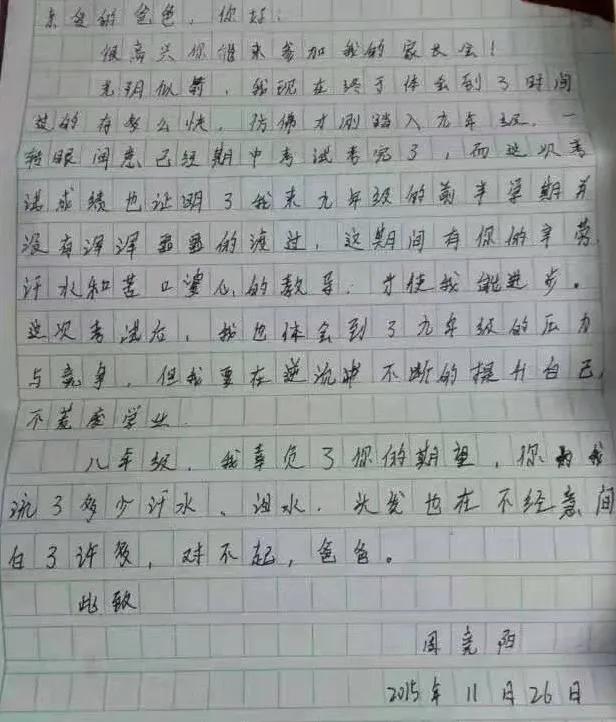 亲爱的爸爸，你好：
很高兴你能来参加我的家长会！
光阴似箭，我现在终于体会到了时间
过的有多么快，仿佛才刚踏入九年级，一
转眼间竟已经期中考试考完了，而这次考
试成绩也证明了我来九年级的前半学期并
没有浑浑噩噩的渡过，这期间有你的辛劳，
汗水和苦口婆心的教导，才使我能进步。
这次考试后，我也体会到了九年级的压力
与竞争，但我要在逆流中不断的提升自己，
不荒废学业.
八年级，我辜负了你的期望，你为我
流了多少汗水、泪水，头发也在不经意间
白了许多，对不起，爸爸。
此致
周竞阳
2015年11月26日